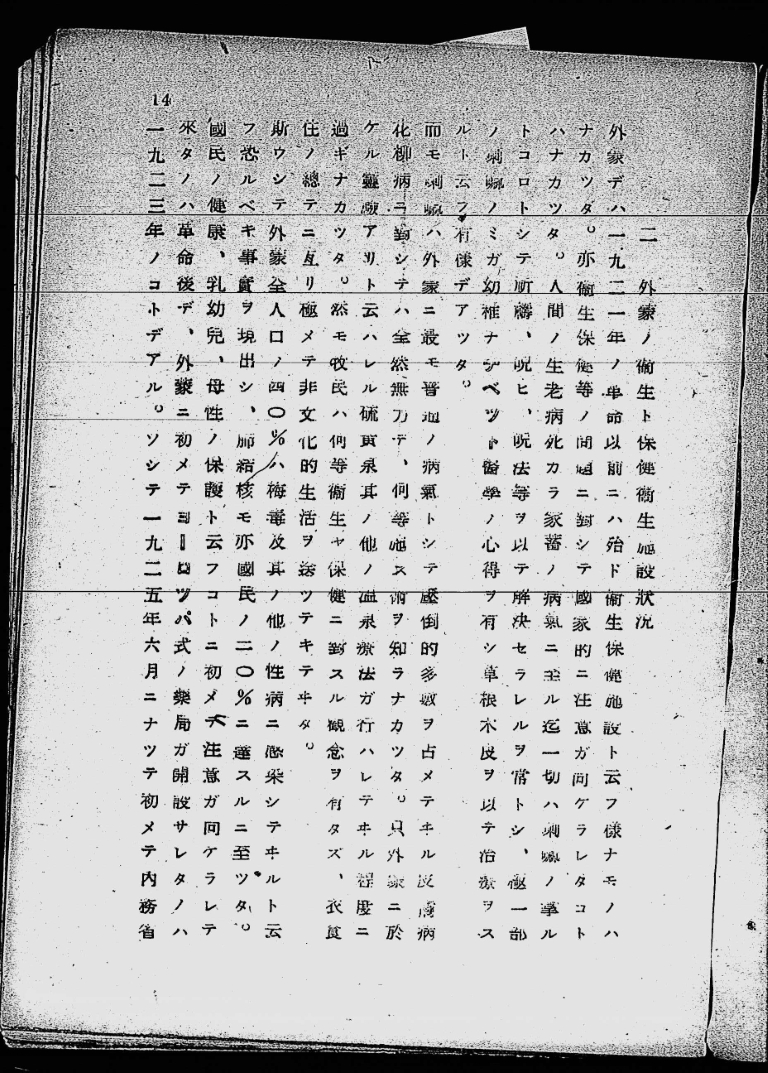 14
二 外蒙ノ衞生ト保健衞生施設狀況
外蒙デハ一九二一年ノ革命以前ニハ殆ド衞生保健施設ト云フ樣ナモノハ
ナカツタ。亦衞生保健等ノ問題ニ對シテ國家的ニ注意ガ向ケラレタコト
ハナカツタ。人間ノ生老病死カラ家蓄ノ病氣ニ至ル迄一切ハ喇嘛ノ掌ル
トコロトシテ祈禱、呪ヒ、呪法等ヲ以テ解決セラレルヲ常トシ、極一部
ノ喇嘛ノミガ幼稚ナチベツト醫學ノ心得ヲ有シ草根木皮ヲ以テ治療ヲス
ルト云フ有樣デアツタ。
而モ喇嘛ハ外蒙ニ最モ普通ノ病氣トシテ壓倒的多數ヲ占メテヰル皮膚病
化柳病ニ對シテハ全然無力デ、何等施ス術ヲ知ラナカツタ。只外蒙ニ於
ケル靈驗アリト云ハレル硫黃泉其ノ他ノ溫泉療法ガ行ハレテヰル程度ニ
過ギナカツタ。然モ牧民ハ何等衞生ヤ保健ニ對スル觀念ヲ有タズ、衣食
住ノ總テニ亙リ極メテ非文化的生活ヲ送ツテキテヰタ。
斯ウシテ外蒙全人口ノ四〇％ハ梅毒及其ノ他ノ性病ニ感染シテヰルト云
フ恐ルベキ事實ヲ現出シ、肺結核モ亦國民ノ二〇％ニ達スルニ至ツタ。
國民ノ健康、乳幼兒、母性ノ保護ト云フコトニ初メテ注意ガ向ケラレテ
來タノハ革命後デ、外蒙ニ初メテヨーロツパ式ノ藥局ガ開設サレタノハ
一九二三年ノコトデアル。ソシテ一九二五年六月ニナツテ初メテ內務省